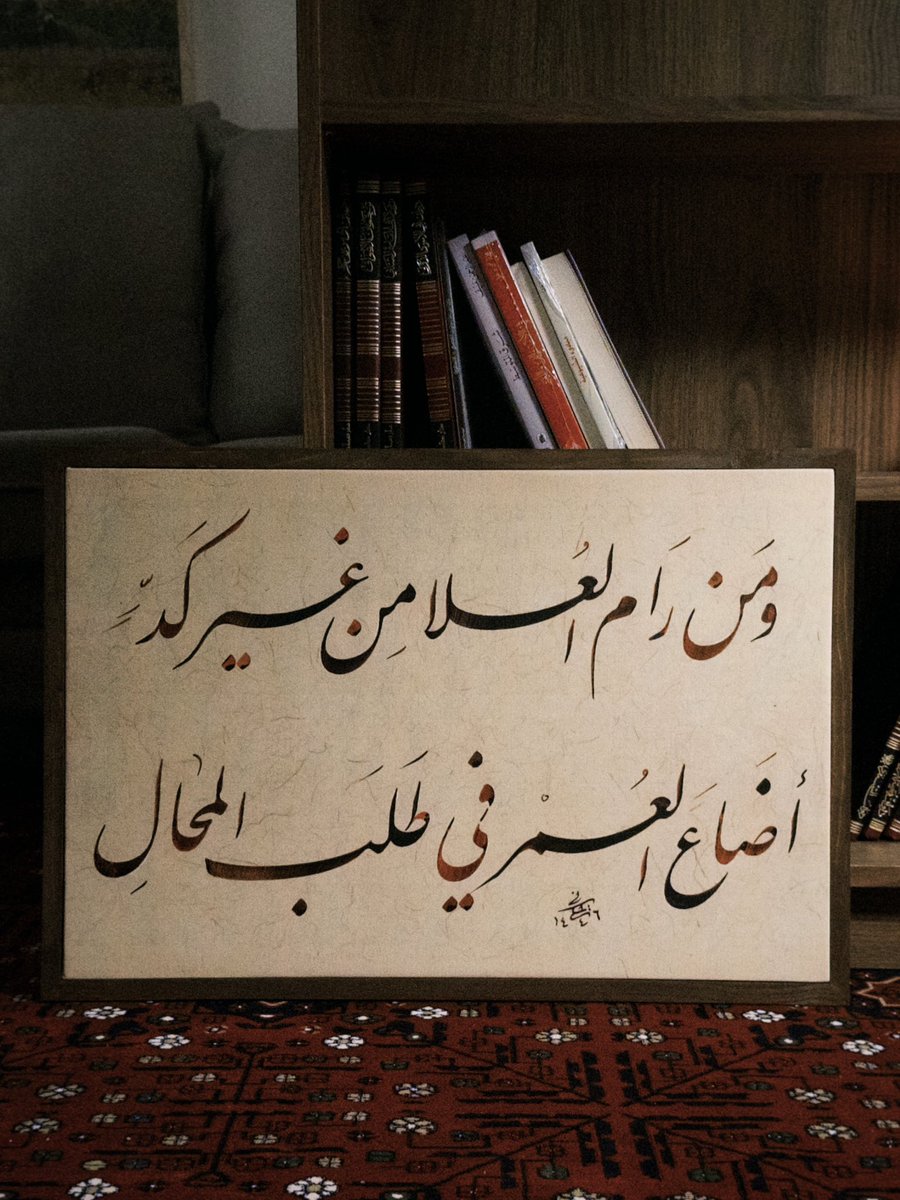 وَمَن رَامَ العُلا مِن غير كَدٍّ
أضَاعَ العُمْر في طَلَب المحالِ
١٤٤٦